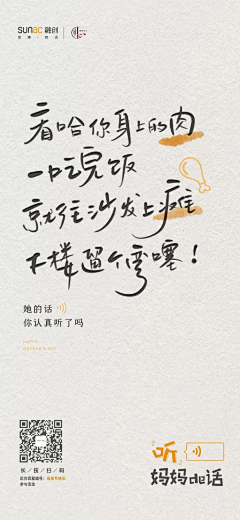 sunac 融创
看哈你身上的肉
一吃完饭
就往沙发上瘫
下楼遛个弯噻！
她的话
你认真听了吗
HAPPY
MOTHER'S DAY
听
妈妈de话
长/按/扫/码
参与互动